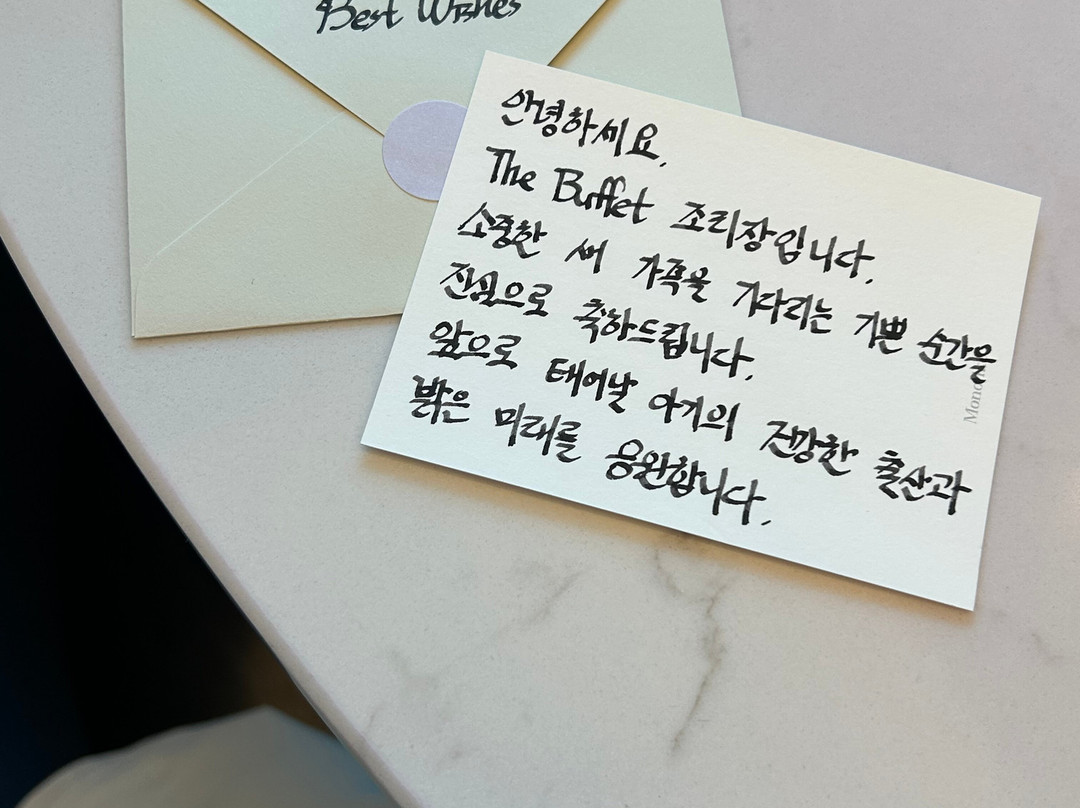 Best Wishes
안녕하세요,
The Buffet 조리장입니다.
소중한 새 가족을 기다리는 기쁜 순간을
진심으로 축하드립니다.
앞으로 태어날 아기의 건강한 출산과
밝은 미래를 응원합니다.